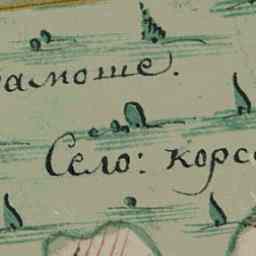 амоше.
Село: корс